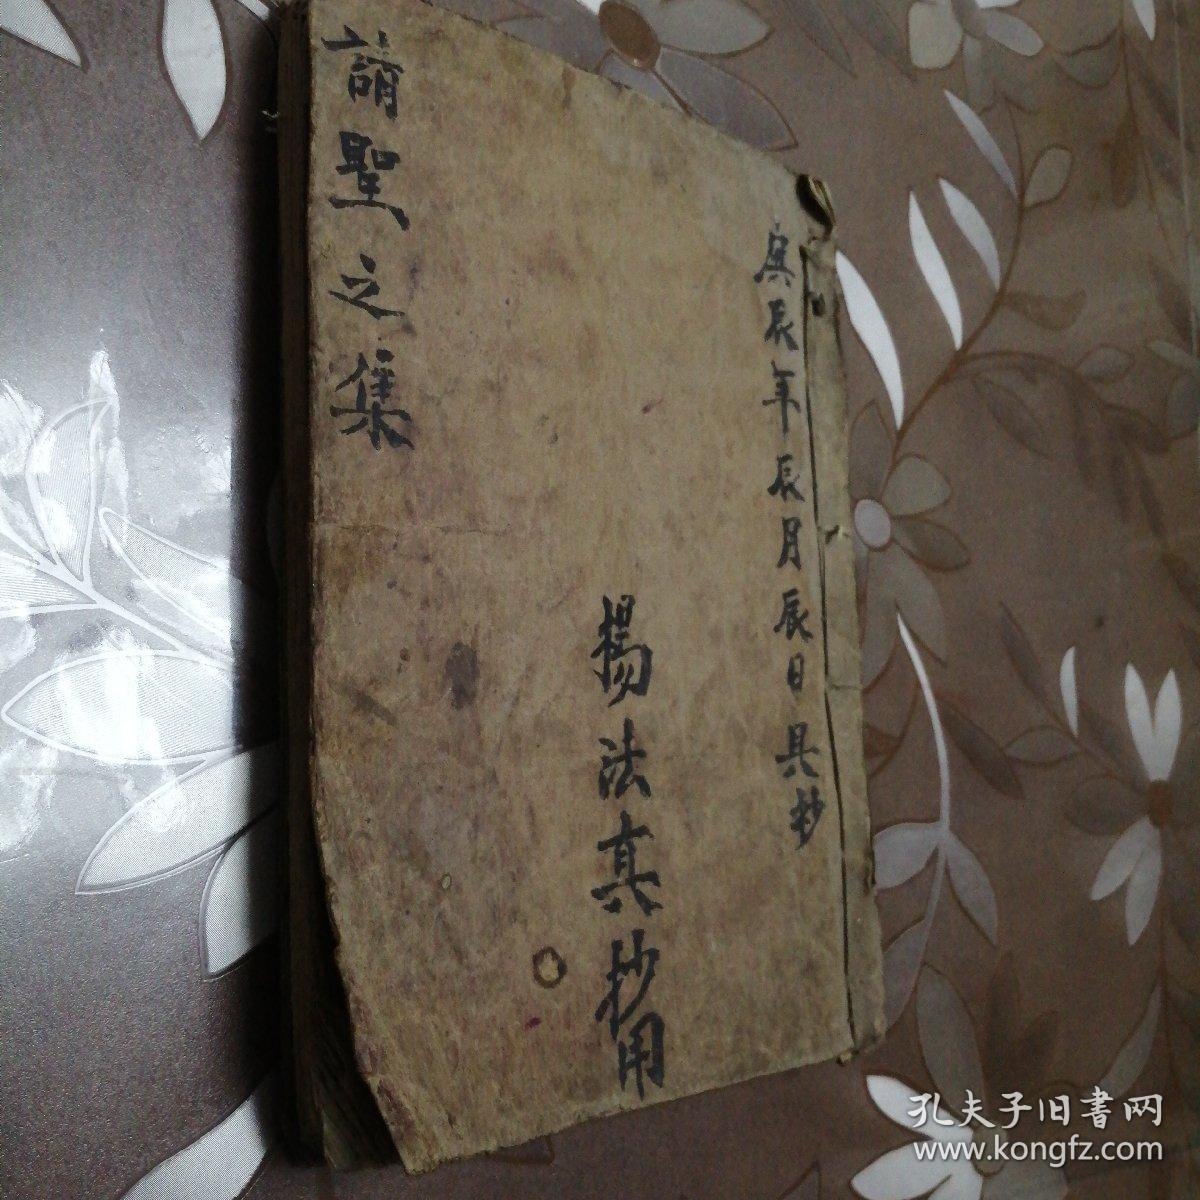 庚辰年辰月辰日具抄
楊法真抄用
請聖之集
孔夫子旧書网
www.kongfz.com